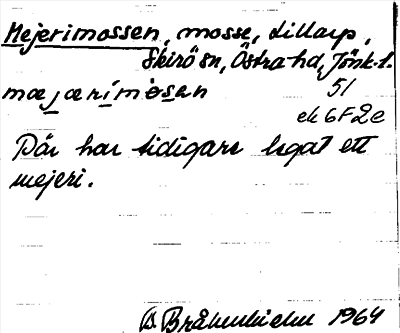 Mejerimossen, mosse, Lillarp,
Skirö sn, Östra hd, Jönk. l.
mæjærimosen 51
ek 6F2e
Där har tidigare legat ett
mejeri.
B. Bråkenhielm 1964